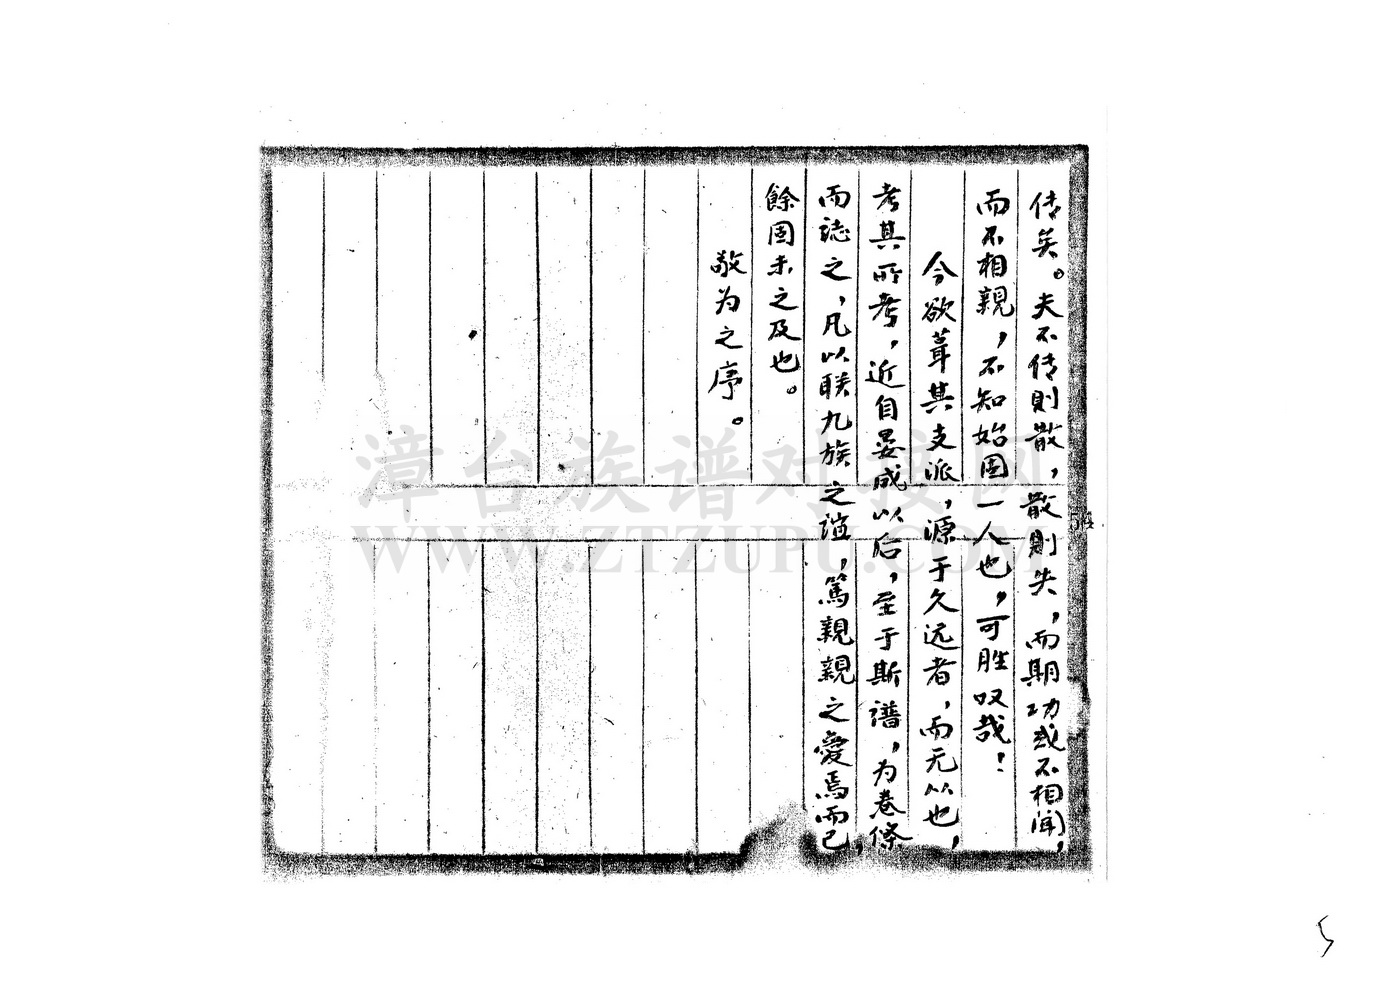 传矣。夫不传則散，散則失，而期功或不相闻，
而不相親，不知始固一人也，可胜叹哉！
今欲葺其支派，源于久远者，而无从也，
考其所考，近自晏成以后，至于斯谱，为卷條
而誌之，凡以联九族之谊，篤親親之愛焉而已，
餘固未之及也。
敬为之序。
漳台族谱对接网
WWW.ZTZUPU.COM
5